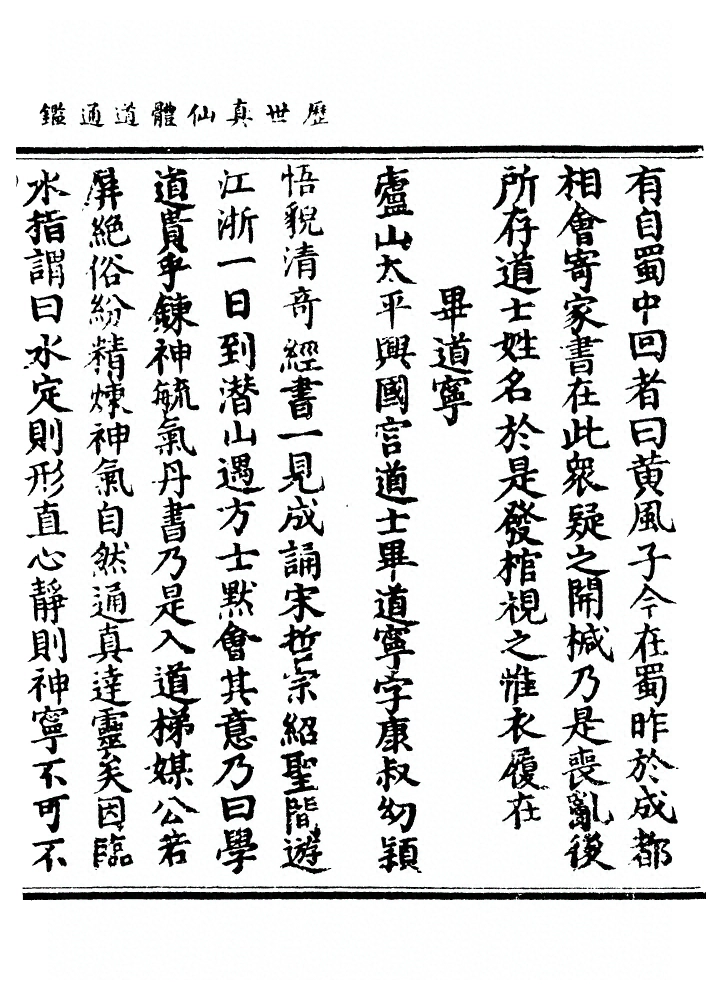 歷世真仙體道通鑑
有自蜀中回者曰黃風子今在蜀昨於成都
相會寄家書在此衆疑之開椷乃是喪亂後
所存道士姓名於是發棺視之惟衣履在
畢道寧
廬山太平興國宮道士畢道寧字康叔幼穎
悟貌清奇經書一見成誦宋哲宗紹聖間遊
江浙一日到潛山遇方士默會其意乃曰學
道貴乎鍊神毓氣丹書乃是入道梯媒公若
屏絕俗紛精煉神氣自然通真達靈矣因臨
水指謂曰水定則形直心靜則神寧不可不